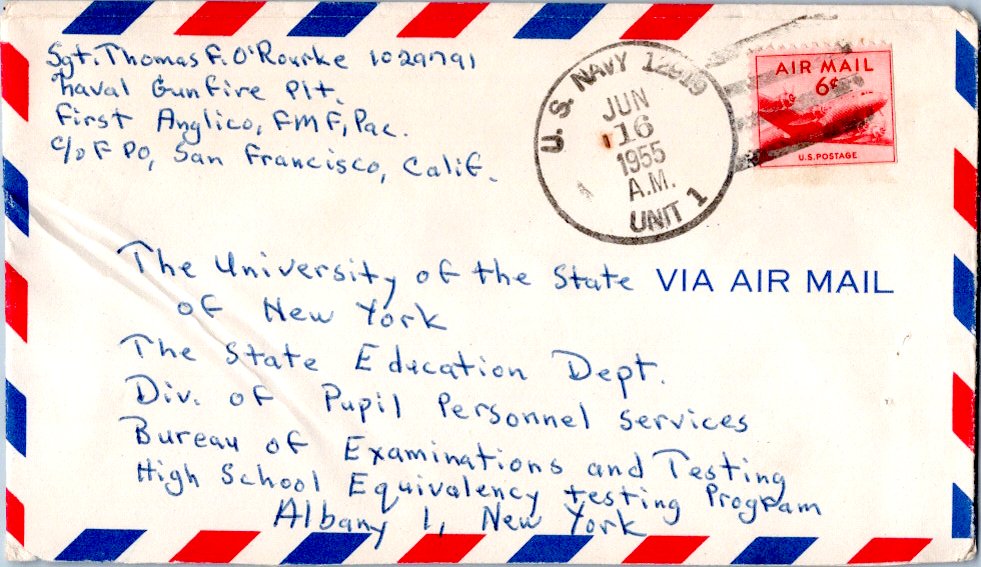 Sgt. Thomas F. O'Rourke 1029791
Naval Gunfire Plt.
First Anglico, FMF, Pac.
c/o F PO, San Francisco, Calif.
U.S. NAVY
JUN
16
1955
A.M.
UNIT 1
AIR MAIL
6¢
U.S. POSTAGE
The University of the State
of New York
VIA AIR MAIL
The State Education Dept.
Div. of Pupil Personnel Services
Bureau of Examinations and Testing
High School Equivalency testing Program
Albany 1, New York